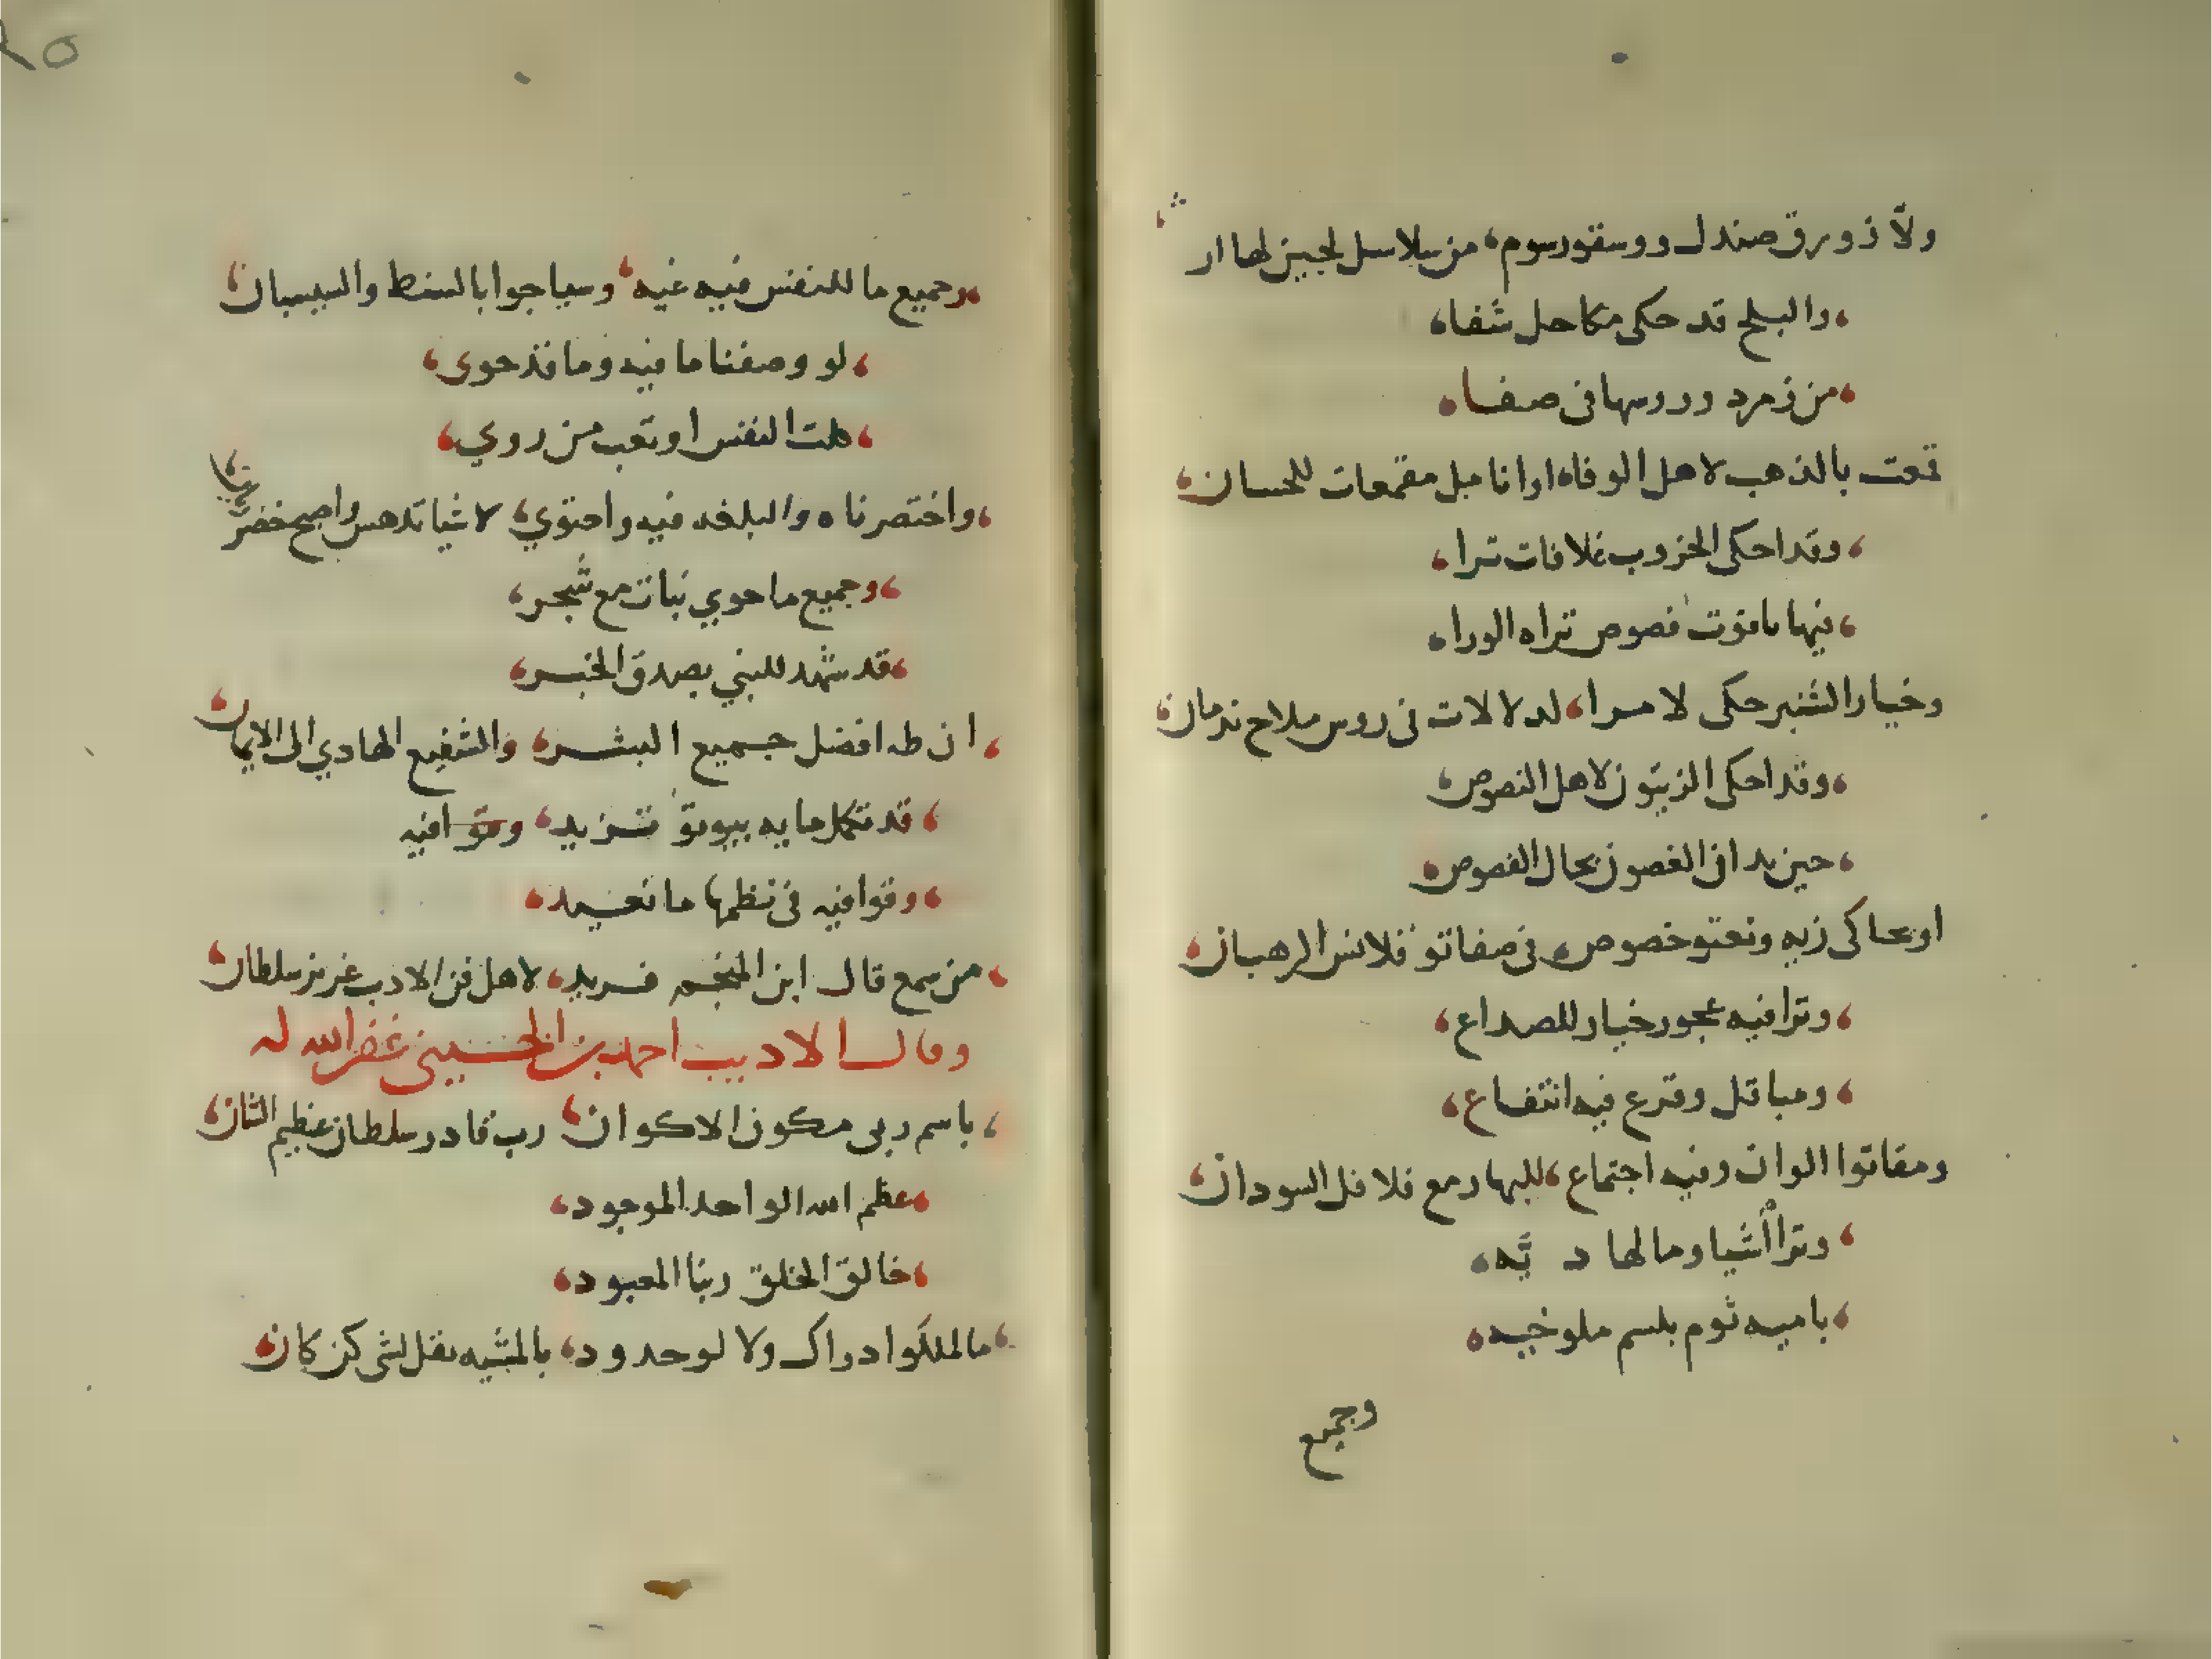 ولّا ذورق صندل وسقو رسوم، من سلاسل لجين لها ار
والبلح قد حكى مكاحل شفاء
من زمرد وروسها فى صفا
قمعت بالذهب لاهل الوفاه او انامل مقمعات للحسان
وقد احكى الخروب غلافات ترا
فيها ياقوت فصوص تراه الورا
وخيار الشنبر حكى لا مرا، لدلالات فى روس ملاح ندمان
وقد احكى الزيتون لاهل النصوص
حين بدا فى الغصون بحال الفصوص
او يحاكى زيه ونعتو خصوص، فى صفاتو قلانس الرهبان
وترا فيه عجور خيار للصداع
ومباقل وقرع فيه انتفاع
ومقاتوا الوان وفيه اجتماع، للبهار مع فلافل السودان
وترا اشيا وما لها د يّه
باميه ثوم بلسم ملوخيه
وجميع
٢٥
وجميع ما للنفس فيه غيه، وسياجوا بالسنط والسيسبان
لو وصفنا ما فيه وما قد حوى
ملت النفس او تعب من روي
واختصرناه والبلخه فيه واحتوي، لاشيا تدهس واصبح خضر
وجميع ما حوي نبات مع شجر
قد شهد للنبي بصدق الخبر
ان طه افضل جميع البشر، والشفيع الهادي الى الايمان
قد تكمل مايه بيوتو تزيد، وقوافيه
وقوافيه فى نظمها ما نعيد
من سمع قال ابن المنجم فريد، لاهل فن الادب عزيز سلطان
وقال الاديب احمد بن الحسينى غفر الله له
باسم ربى مكون الاكوان، رب قادر سلطان عظيم الشان
عظم الله الواحد الموجود
خالق الخلق ربنا المعبود
ما لملكوا دراك ولا لو حدود، بالمشيه يقل لشى كن كان